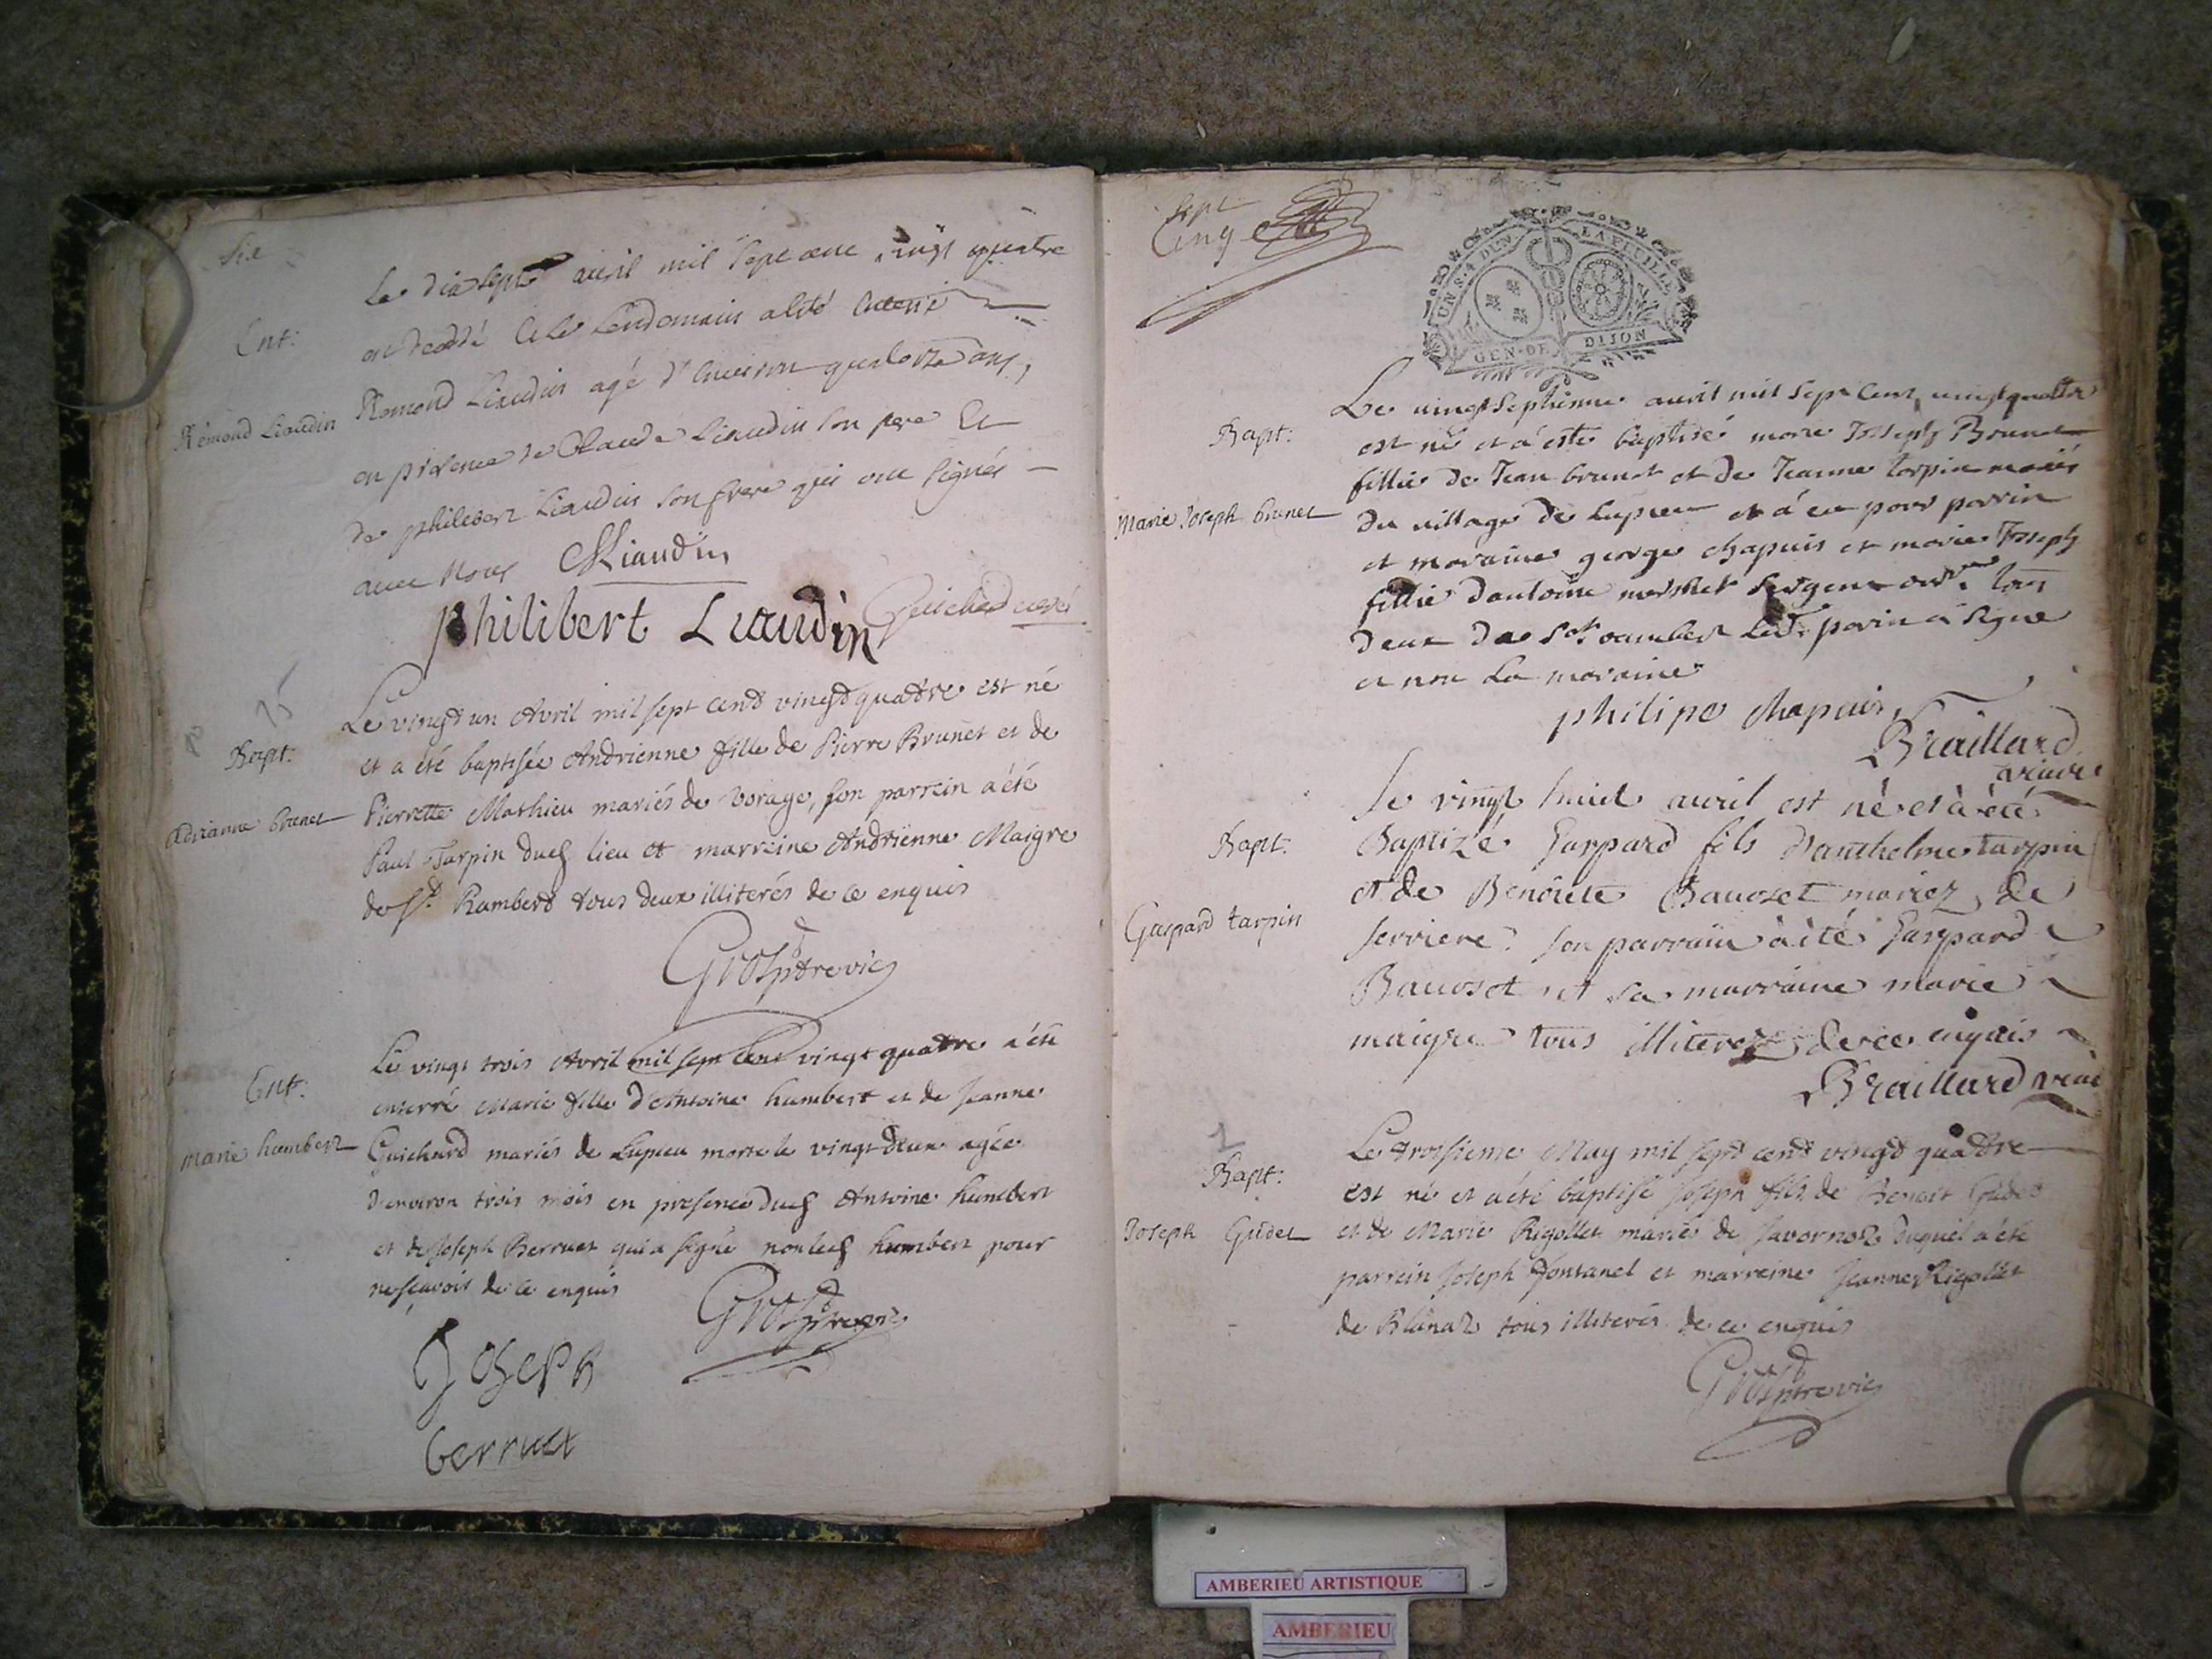 Six
Ent:
Rémond Liaudin
Le dix sept avril mil sept cent vingt quatre
est decédé et le lendemain a été enterré
Remond Liaudin agé d'environ quatorze ans,
en présence de Claude Liaudin son pere et
de philibert Liaudin son frere qui ont signés
avec nous CLiaudin
philibert Liaudin Guichard curé
Bapt:
Adrianne brunet
Le vingt un Avril mil sept cent vingt quattre est né
et a été baptisée Andrienne fille de Pierre Brunet et de
Pierrette Mathieu mariés de vorage, son parrein a été
Paul Tarpin dud lieu et marreine Andrienne Maigre
de St Rambert tous deux illiterés de ce enquis
Grosptrevic
Ent:
Marie humbert
Le vingt trois Avril mil sept cent vingt quattre a été
enterré Marie fille d'Antoine humbert et de Jeanne
Guichard mariés de Lupieu morte le vingt deux agée
d'environ trois mois en presence dud Antoine humbert
et de Joseph Berruet qui a signé non led humbert pour
ne scavoir de ce enquis
Grosptrevic
Joseph
berruet
Sept
Cinq
UN S. 4 D. UN LA FEUILLE
GEN. DE DIJON
Bapt:
Marie Joseph brunet
Le vingt septième avril mil sept cent vingt quattre
est né et a esté baptisé marie Joseph Brunet
fillie de Jean brunet et de Jeanne tarpin mariés
du village de Lupieu et a eu pour parrin
et maraine george chapuis et marie Joseph
fillie dantoine sergent tous
deux de St rambert Led. parin a signe
et non La maraine
philipe chapuis
Braillard
vicaire
Bapt:
Gaspard tarpin
Le vingt huit avril est né et à été
Baptizé Gaspard fils d'anthelme tarpin
et de Benoite Bauoset mariez de
serriere son parrain à été Gaspard
Bauoset et sa marraine marie
maigre tous illiterez de ce enquis
Braillard vicai
1
Bapt:
Joseph Gudet
Le troisieme May mil sept cent vingt quattre
est né et a été baptisé Joseph fils de Benoit Gudet
et de Marie Rigollet mariés de Javornoz duquel a été
parrein Joseph fontanel et marreine Jeanne Rigollet
de Blanaz tous illiterés de ce enquis
Grosptrevic
AMBERIEU ARTISTIQUE
AMBERIEU